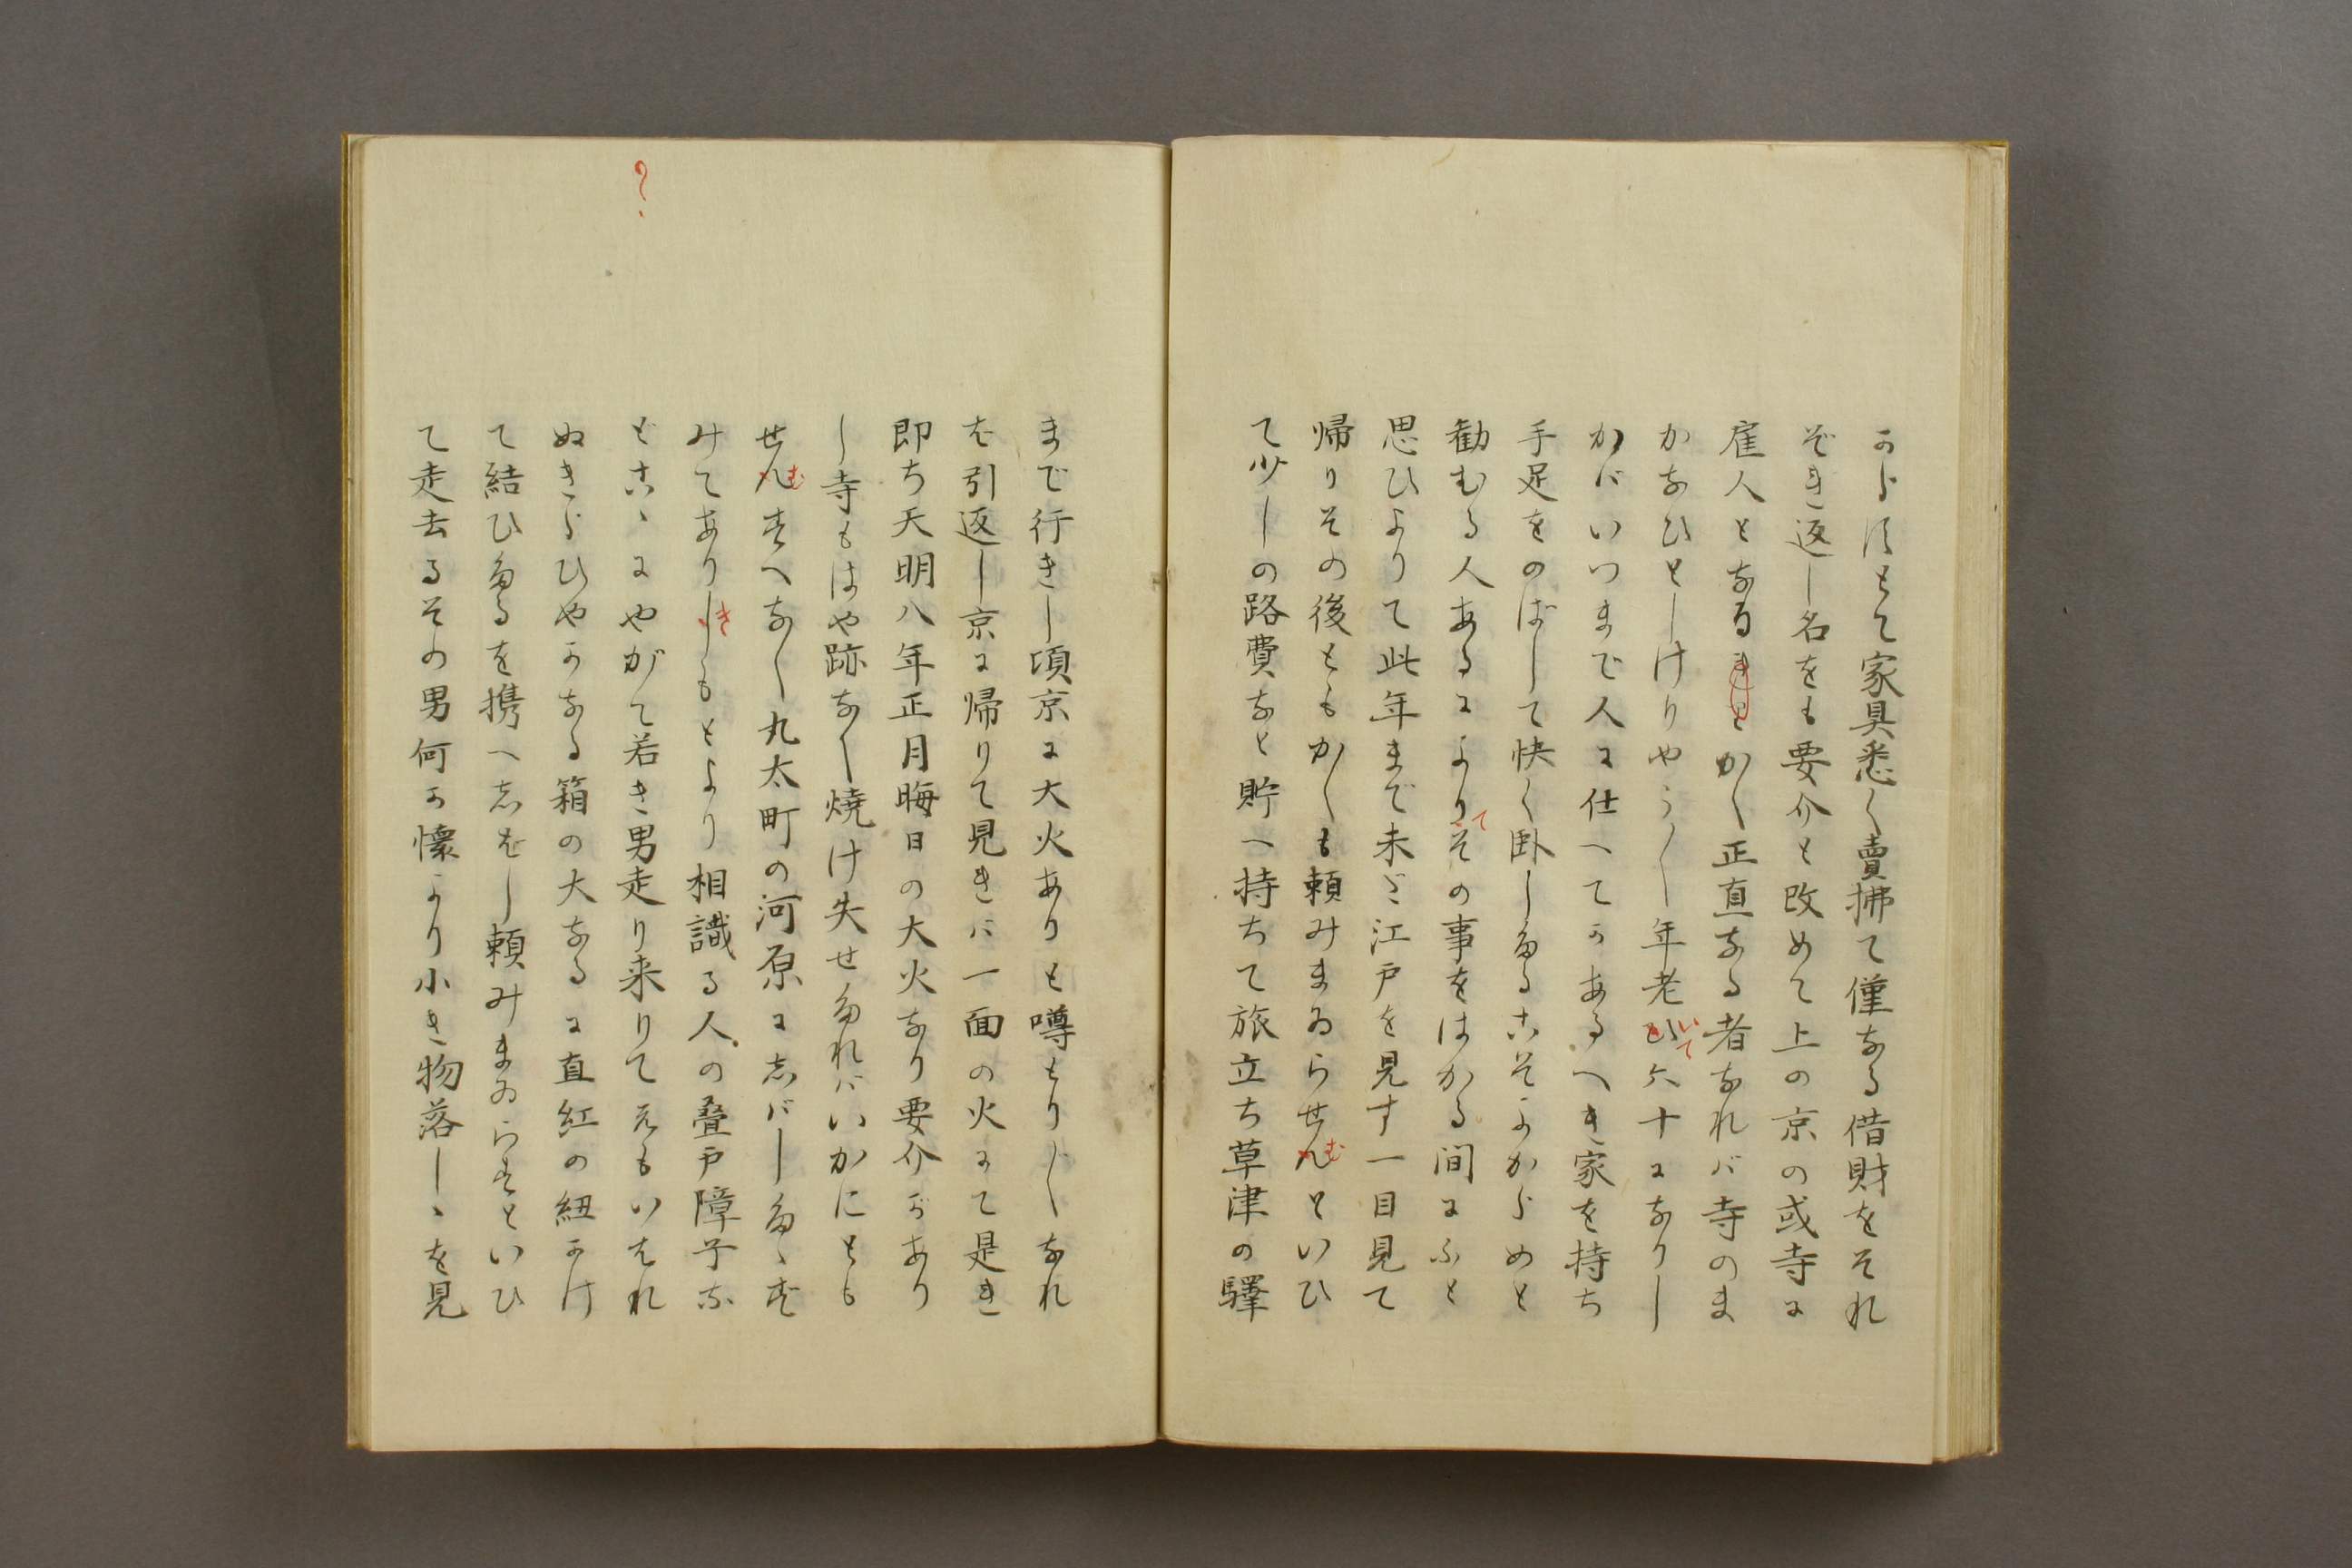 からはとて家具悉く賣拂て僅なる借財をそれ
ぞれ返し名をも要介と改めて上の京の或寺に
雇人となるきとかく正直なる者なれバ寺のま
かなひとしけりやう〱年老ひ六十になりし
かバいつまで人に仕へてかあるへき家を持ち
手足をのばして快く臥したるこそよからめと
勧むる人あるによりその事をはかる間にふと
思ひよりて此年まで未ダ江戸を見す一目見て
帰りその後ともかくも頼みまゐらせんといひ
て少しの路費なと貯へ持ちて旅立ち草津の驛
まで行きし頃京に大火ありと噂とり〲なれ
ば引返し京に帰りて見きバ一面の火にて是き
即ち天明八年正月晦日の大火なり要介があり
し寺もはや跡なく焼け失せたれバいかにとも
せんすべなく丸太町の河原にしバしたゝず
みてありしもとより相識る人の疊戸障子な
どこゝにやがて若き男走り来りてえもいはれ
ぬきらひやかなる箱の大なるに直紅の紐かけ
て結ひたるを携へしばし頼みまゐらすといひ
て走去るその男何か懐より小き物落しゝを見
て
いて
む
む
き
？